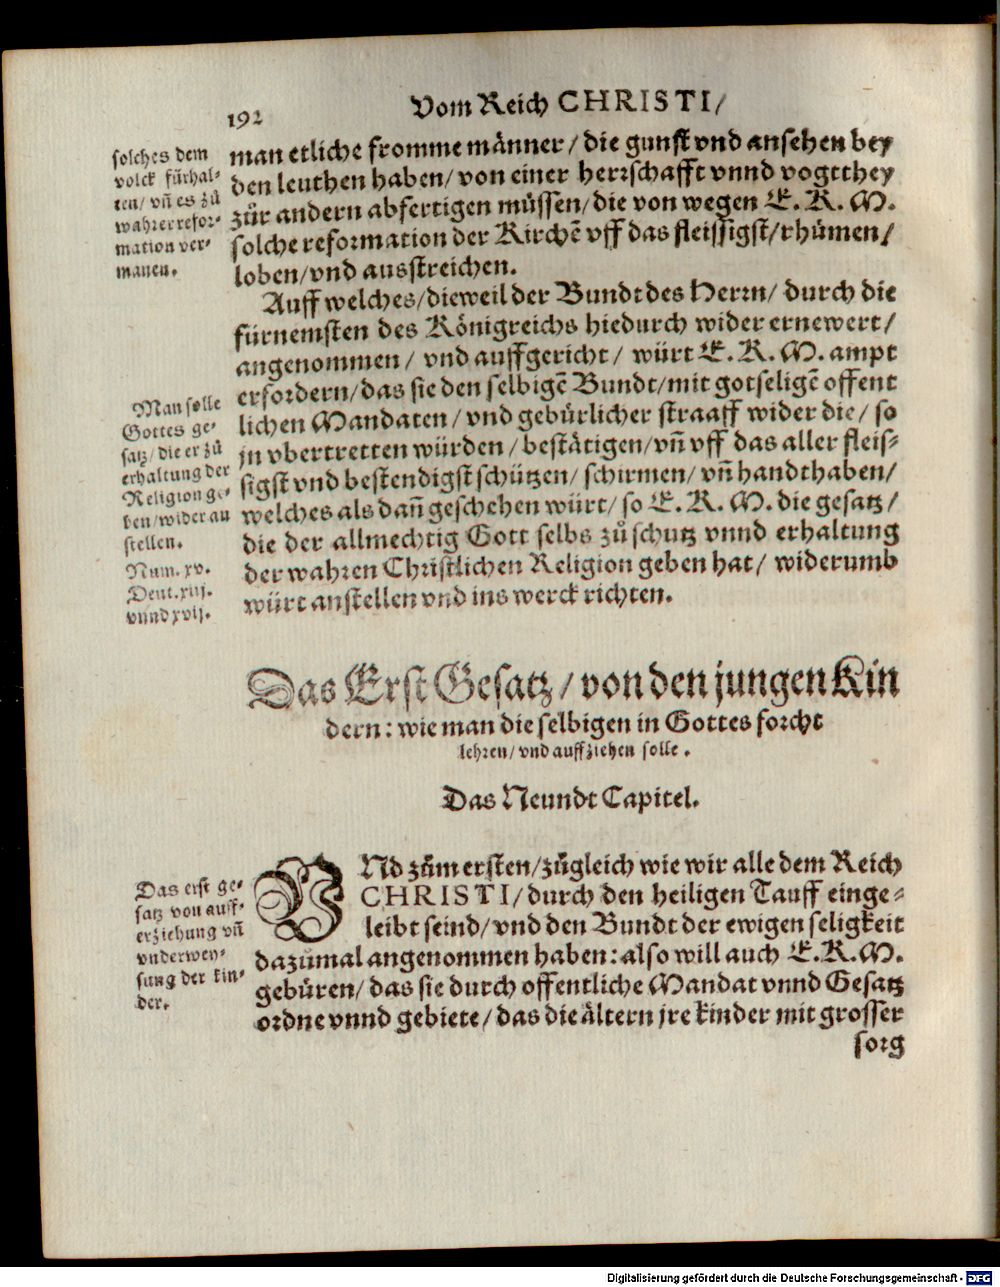 192
Vom Reich CHRISTI/
solches dem
volck fürhal-
ten/ vñ es zů
wahrer refor-
mation ver-
manen.
man etliche fromme männer/ die gunst vnd ansehen bey
den leuthen haben/ von einer herrschafft vnnd vogtthey
zůr andern abfertigen müssen/ die von wegen E. K. M.
solche reformation der Kirchẽ vff das fleissigst/ rhůmen/
loben/ vnd ausstreichen.
Auff welches/ dieweil der Bundt des Herrn/ durch die
fürnemsten des Königreichs hiedurch wider ernewert/
angenommen/ vnd auffgericht/ würt E. K. M. ampt
erfordern/ das sie den selbigẽ Bundt/ mit gotseligẽ offent
lichen Mandaten/ vnd gebürlicher straaff wider die/ so
jn vbertretten würden/ bestätigen/ vñ vff das aller fleis-
sigst vnd bestendigst schützen/ schirmen/ vñ handthaben/
welches als dañ geschehen würt/ so E. K. M. die gesatz/
die der allmechtig Gott selbs zů schutz vnnd erhaltung
der wahren Christlichen Religion geben hat/ widerumb
würt anstellen vnd ins werck richten.
Man solle
Gottes ge-
satz/ die er zů
erhaltung der
Religion ge-
ben/ wider an
stellen.
Num. xv.
Deut. xiij.
vnnd xvij.
Das Erst Gesatz/ von den jungen Kin
dern: wie man die selbigen in Gottes forcht
lehren/ vnd auffziehen solle.
Das Neundt Capitel.
Das erst ge-
satz von auff-
erziehung vñ
vnderwey-
sung der kin-
der.
VNd zům ersten/ zůgleich wie wir alle dem Reich
CHRISTI/ durch den heiligen Tauff einge-
leibt seind/ vnd den Bundt der ewigen seligkeit
dazůmal angenommen haben: also will auch E. K. M.
gebüren/ das sie durch offentliche Mandat vnnd Gesatz
ordne vnnd gebiete/ das die ältern jre kinder mit grosser
sorg
Digitalisierung gefördert durch die Deutsche Forschungsgemeinschaft - DFG